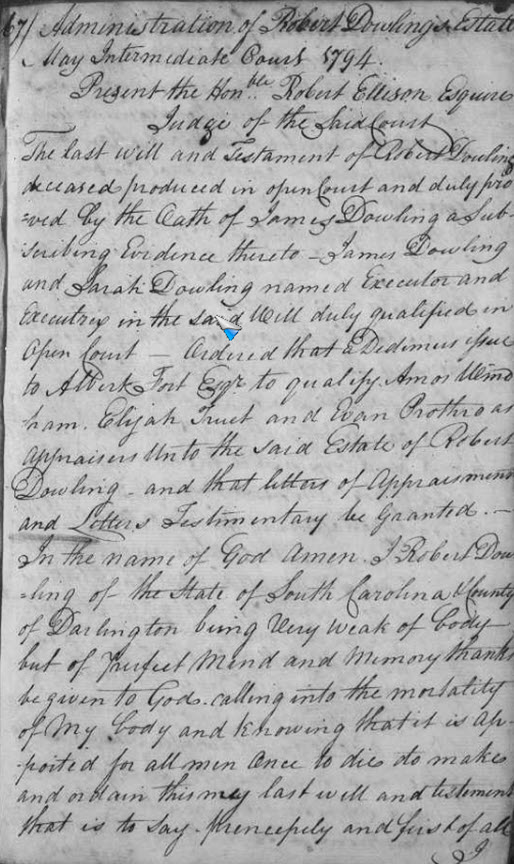 67/ Administration of Robert Dowling's Estate
May Intermediate Court 1794.
Present the Honble Robert Ellison Esquire
Judge of the Said Court
The last will and Testament of Robert Dowling
deceased produced in open Court and duly pro
=ved by the Oath of James Dowling a Sub-
scribing Evidence thereto – James Dowling
and Sarah Dowling named Executor and
Executrix in the said Will duly qualified in
Open Court – Ordered that a Dedimus issue
to Albert Fort Esqr to qualify Amos Wind
ham. Elijah Truet and Evan Prothro as
appraisers Unto the said Estate of Robert
Dowling – and that letters of Appraisment
and Letters Testimentary be Granted. –
In the name of God Amen. I Robert Dow
=ling of the State of South Carolina & County
of Darlington being Very weak of body
but of Perfect Mind and Memory thanks
be given to God. calling into the mortality
of My body and Knowing that it is ap-
pointed for all men Once to die do make
and ordain this my last will and testement
that is to say princepely and first of all
I